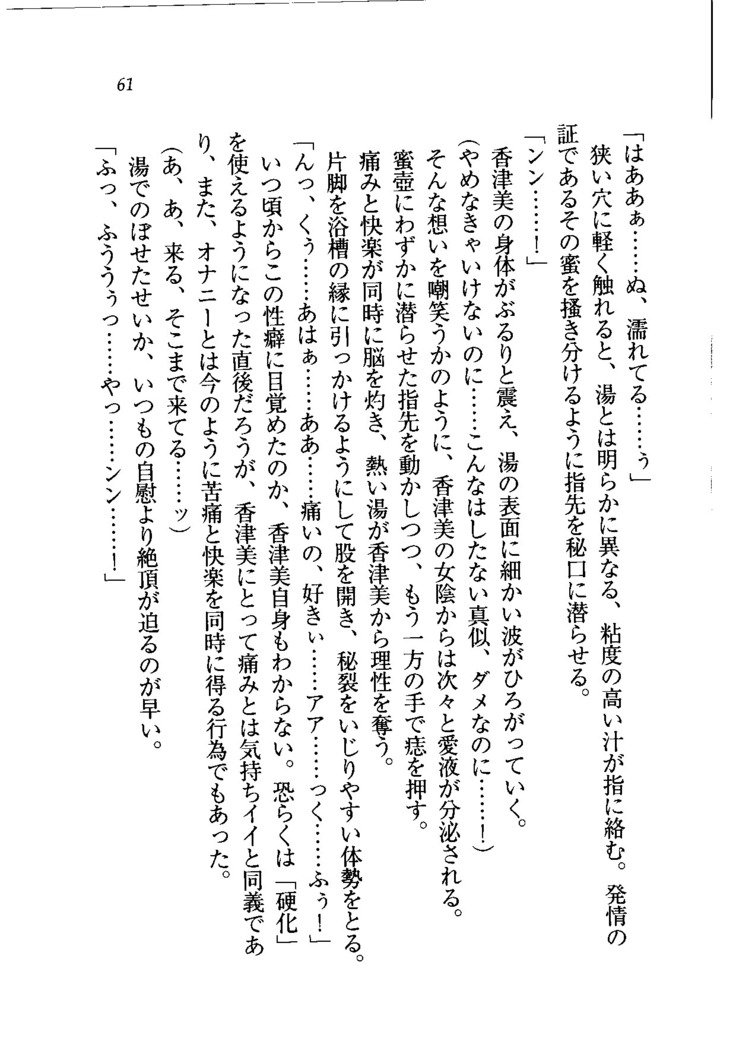 61
「はああぁ……ぬ、濡れてる……ぅ」
狭い穴に軽く触れると、湯とは明らかに異なる、粘度の高い汁が指に絡む。発情の
証であるその蜜を掻き分けるように指先を秘口に潜らせる。
「ンン……！」
香津美の身体がぶるりと震え、湯の表面に細かい波がひろがっていく。
(やめなきゃいけないのに……こんなはしたない真似、ダメなのに……！)
そんな想いを嘲笑うかのように、香津美の女陰からは次々と愛液が分泌される。
蜜壺にわずかに潜らせた指先を動かしつつ、もう一方の手で痣を押す。
痛みと快楽が同時に脳を灼き、熱い湯が香津美から理性を奪う。
片脚を浴槽の縁に引っかけるようにして股を開き、秘裂をいじりやすい体勢をとる。
「んっ、くぅ……あはぁ……ああ……痛いの、好きぃ……アア……っく……ふぅ！」
いつ頃からこの性癖に目覚めたのか、香津美自身もわからない。恐らくは「硬化」
を使えるようになった直後だろうが、香津美にとって痛みとは気持ちイイと同義であ
り、また、オナニーとは今のように苦痛と快楽を同時に得る行為でもあった。
(あ、あ、来る、そこまで来てる……ッ)
湯でのぼせたせいか、いつもの自慰より絶頂が迫るのが早い。
「ふっ、ふううぅっ……やっ……ンン……！」